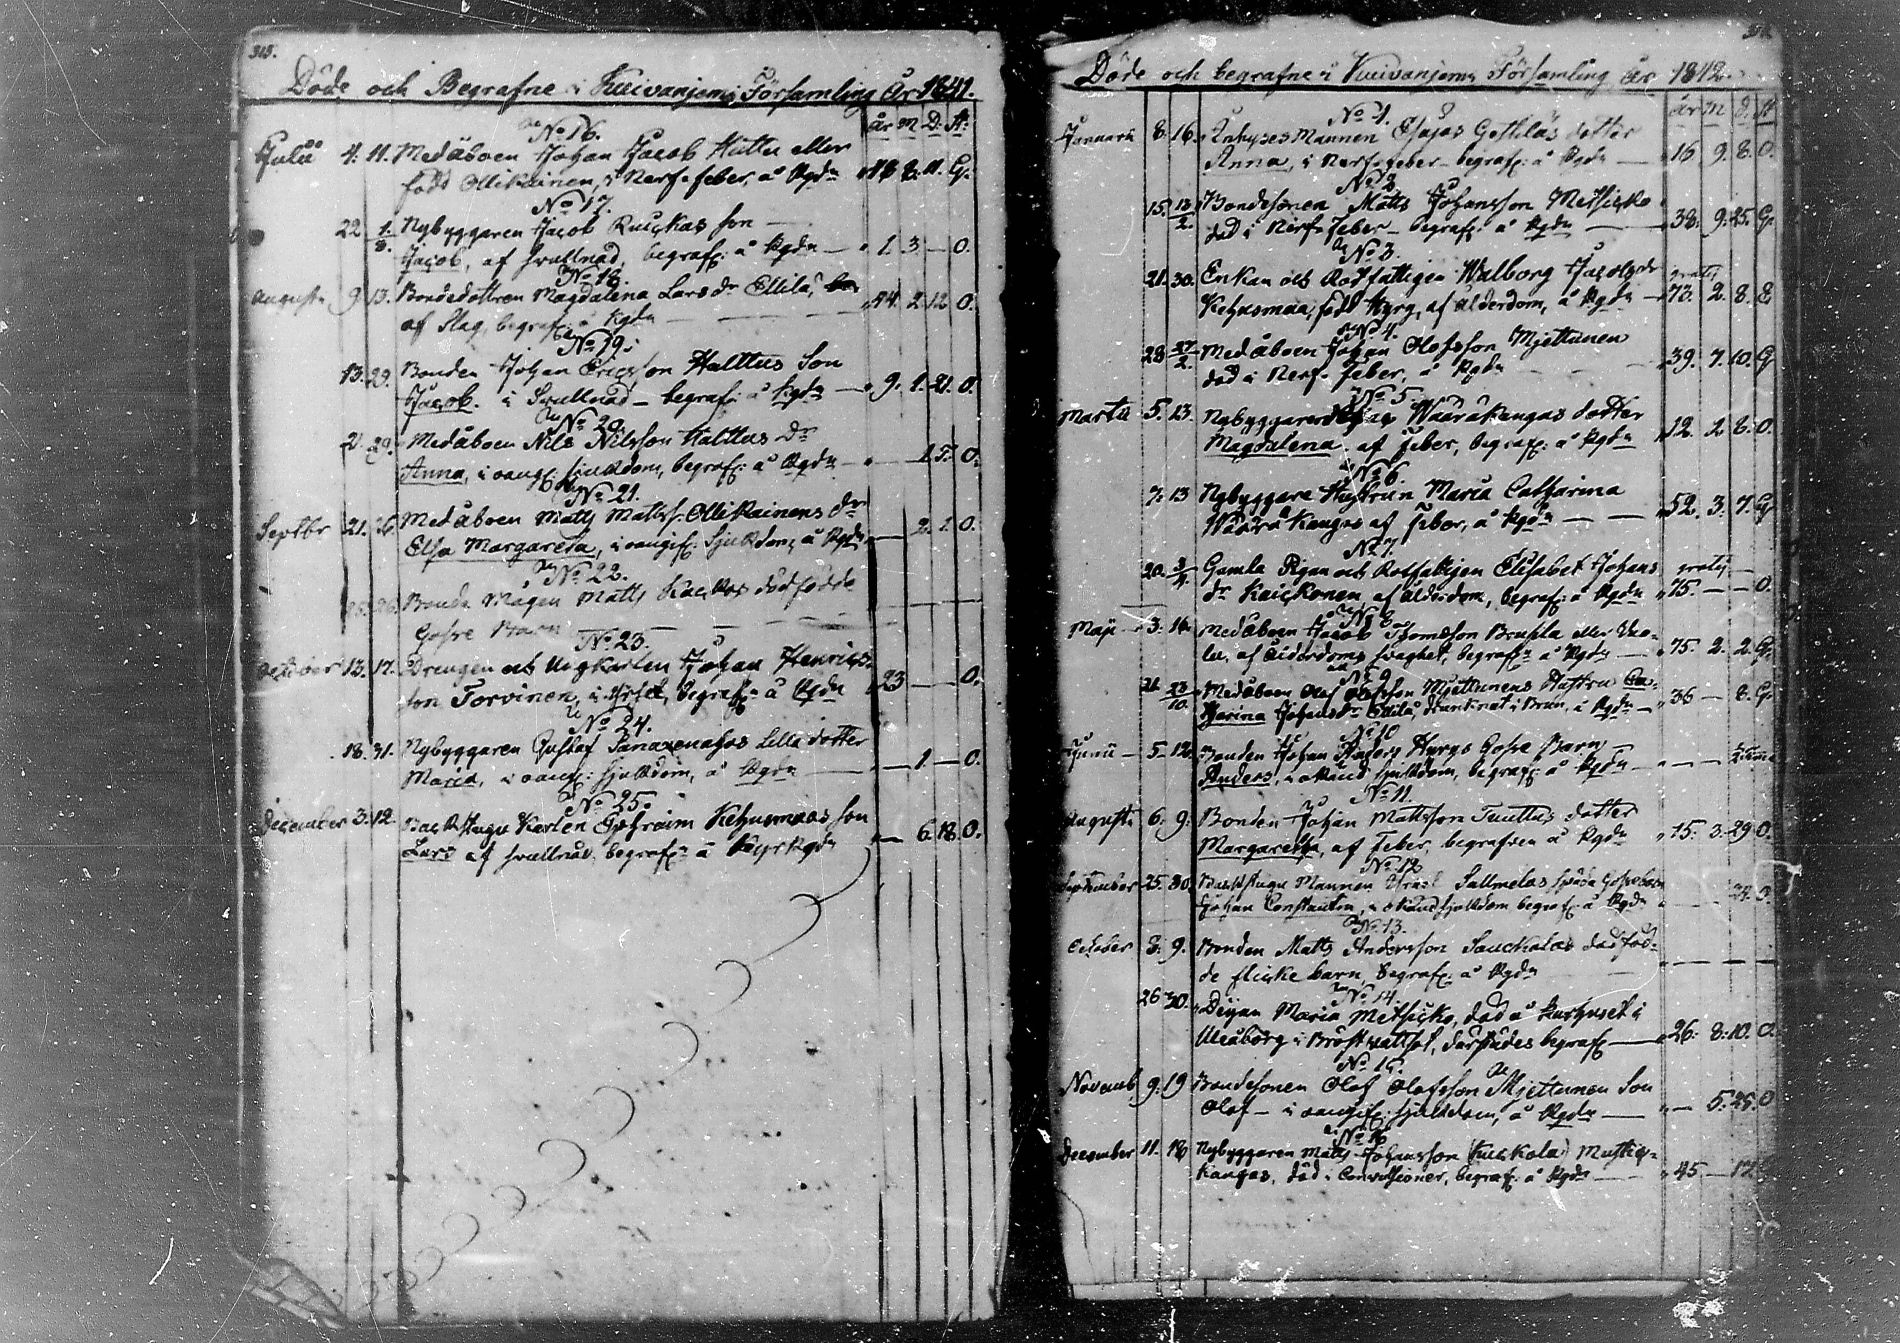 313.
Döde och Begrafne i Kuivaniemi Församling År 1841.
år M. D. A:
No 16.
Julii 4. 11. Medåboen Johan Jacob Huttu eller
född Ollikainen, i Nerf-feber, å Kgdn 48 8. 11. G.
No 17.
22 1/8. Nybyggaren Jacob Ruickas son
Jacob, af svullnad, begraf: å Kgdn 1. 3 — 0.
No 18.
Augusti 9. 13. Bondedottren Magdalena Larsdr Ellilä,
af Slag, begraf: å Kgdn 44. 2. 12 0.
No 19.
13. 29. Bonden Johan Ericsson Halttus Son
Jacob. i Svullnad — begraf: å Kgdn — 9. 1. 21. 0.
No 20.
21. 29. Medåboen Nils Nilsson Halttus Dr
Anna, i oangif: sjukdom, begraf: å Kgdn — 15. 0.
No 21.
Septbr 21. 26. Medåboen Matts Matts. Ollikainens dr
Elsa Margareta, i oangif: Sjukdom, å Kgdn — 2. 1. 0.
No 22.
Bonde Mågen Matts dödfödde
Gosse Barn
No 23.
October 13. 17. Drengen och Ungkarlen Johan Henrics-
son Torvinen, begraf: å Kgdn 23 — 0.
No 24.
18. 31. Nybyggaren Gustaf lilla dotter
Maria, i oangif: sjukdom, å Kgdn — 1 — 0.
No 25.
December 3. 12. Backstugu Karlen Ephraim Kehusmaas son
Lars af svullnad, begraf: å Kyrkgdn — 6. 18. 0.
Döde och begrafne i Kuivaniemi Församling År 1842.
år M D. A
No 1.
Januarii 8. 16. Inhyses Mannen Esajas dotter
Anna, i Nerf-feber — begraf: å Kgdn — 16 9. 8. 0.
No 2.
15. 13/2. Bondesonen Matts Johansson Metsicko
död i Nerf-feber — begraf: å Kgdn — 38. 9. 25. G.
No 3.
21. 30. Enkan och Rotfattigen Walborg Jacobsdr gratis
Kehusmaa, född Hyry, af ålderdom, å Kgdn — 73. 2. 8. E
No 4.
28 27/2. Medåboen Johan Olofsson Mjettunen
död i Nerf-feber, å Kgdn 39. 7. 10. G
No 5.
Martii 5. 13. Nybyggaren Waarakangas dotter
Magdalena, af feber, begraf: å Kgdn 12. 2 8. 0.
No 6.
7. 13 Nybyggare Hustrun Maria Catharina
Waarakangas af feber, å Kgdn — 52. 3. 7. G
No 7.
20. 3/4. Gamla Pigan och Rotfattigen Elisabet Johans gratis
dr Kaickonen af ålderdom, begraf: å Kgdn 75. — 0.
No 8
Maji 3. 16. Medåboen Jacob Thomasson eller
af ålderdoms svaghet, begrafn å Kgdn 75. 2. 2. G.
No 9
21 23/10. Medåboen Olof Olofsson Mjettunens Hustru Ca-
tharina Johansdr Ellilä, drunknat i Brun, å Kgdn — 36 — 8. G.
No 10
Junii 5. 12. Bonden Johan Hyrys Gosse Barn
Anders, i okänd sjukdom, begraf: å Kgdn — —
No 11.
Augusti 6. 9. Bonden Johan Mattsson Tuuttus dotter
Margareta, af feber, begrafven å Kgdn 15. 3. 29 0.
No 12
September 25. 30. Backstugu Mannen Sallmelas späda Gossebarn
Johan Constantin, i okänd sjukdom begraf: å Kgdn
No 13.
October 8. 9. Bonden Matts Andersson dödföd-
de flicke barn, begraf: å Kgdn
No 14.
26 30. Pigan Maria Metsicko, död å kurhuset i
Uleåborg i Bröst wattsot, därstädes begraf — 26. 8. 10. 0.
No 15.
Novemb. 9. 19 Bondesonen Olof Olofsson Mjettunen Son
Olof — i oangif: sjukdom, å Kgdn — 5. 25. 0
No 16
December 11. 18 Nybyggaren Matts Johansson (Kuckola) Mustic-
kangas, död i Convulsioner, begraf: å Kgdn — 45 — 17.